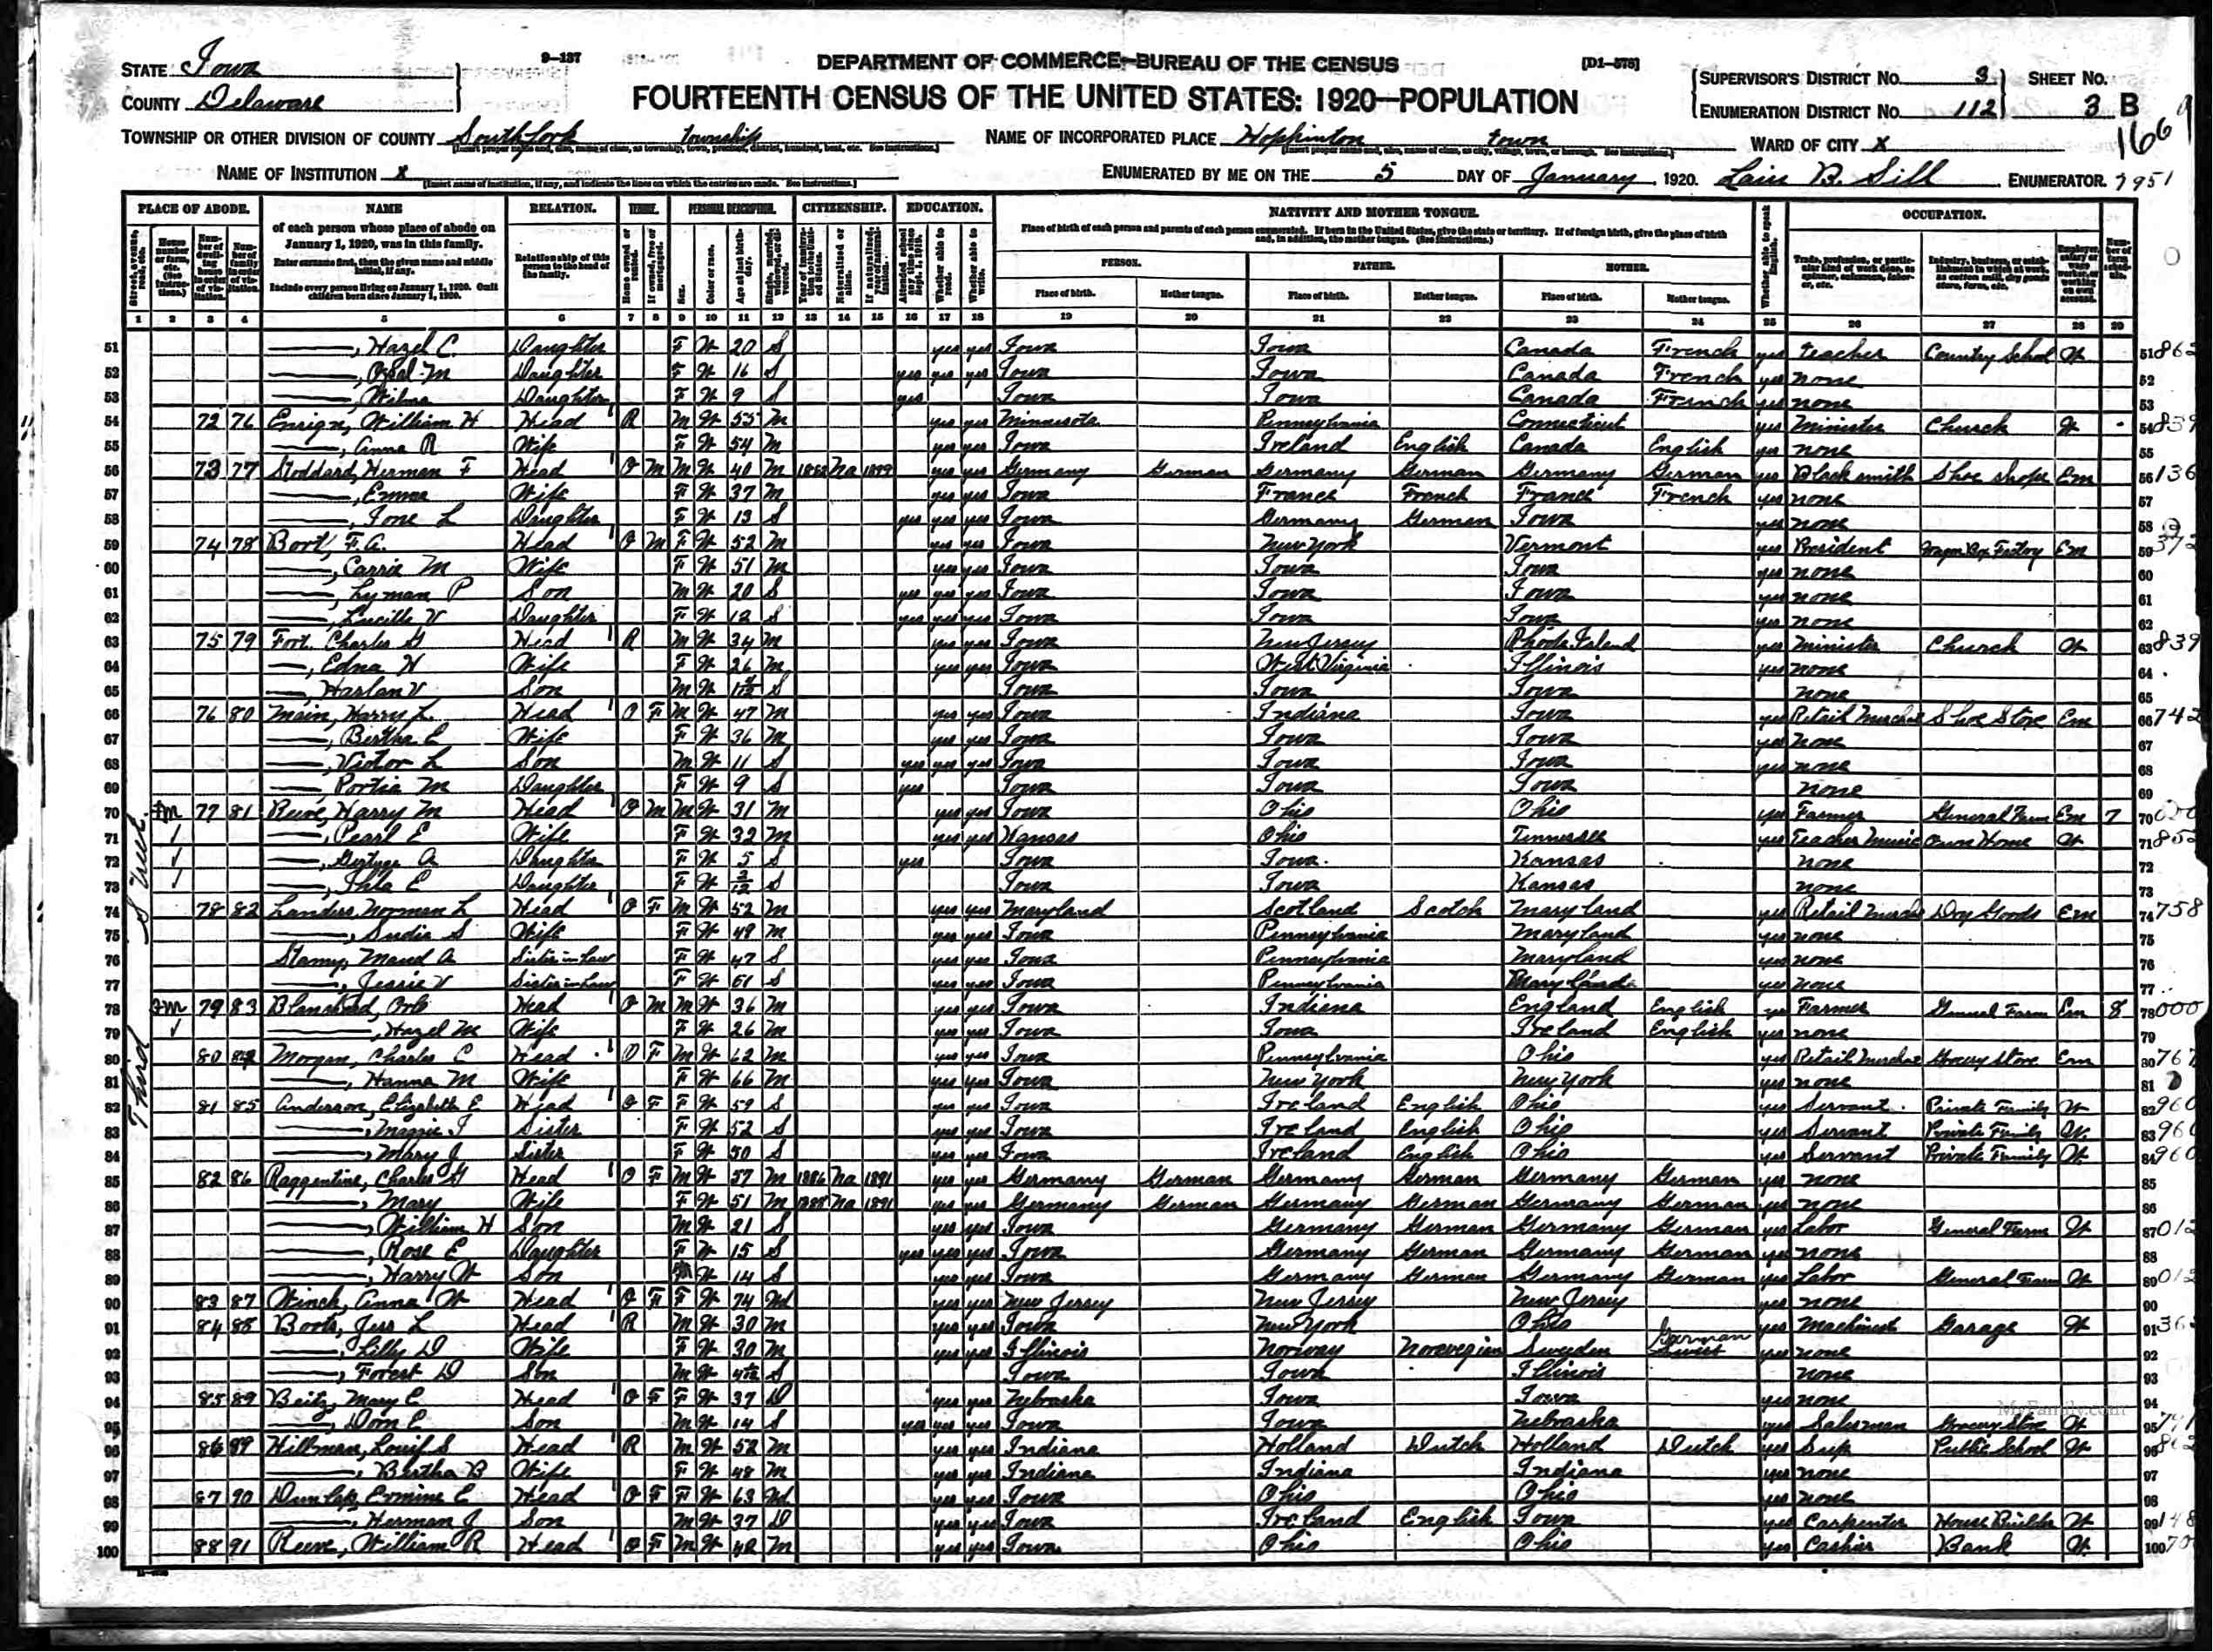 9-137 DEPARTMENT OF COMMERCE—BUREAU OF THE CENSUS [D1-578]
STATE Iowa
COUNTY Delaware
FOURTEENTH CENSUS OF THE UNITED STATES: 1920—POPULATION
SUPERVISOR'S DISTRICT No. 3 SHEET No.
ENUMERATION DISTRICT No. 112 3 B
166
TOWNSHIP OR OTHER DIVISION OF COUNTY South Fork township NAME OF INCORPORATED PLACE Hopkinton town WARD OF CITY X
NAME OF INSTITUTION X ENUMERATED BY ME ON THE 5 DAY OF January, 1920. B. Sill ENUMERATOR. 7951
PLACE OF ABODE. NAME RELATION. TENURE. PERSONAL DESCRIPTION. CITIZENSHIP. EDUCATION. NATIVITY AND MOTHER TONGUE. OCCUPATION.
of each person whose place of abode on January 1, 1920, was in this family.
Enter surname first, then the given name and middle initial, if any.
Include every person living on January 1, 1920. Omit children born since January 1, 1920.
Relationship of this person to the head of the family.
Place of birth of each person and parents of each person enumerated. If born in the United States, give the state or territory. If of foreign birth, give the place of birth and, in addition, the mother tongue. (See Instructions.)
PERSON. FATHER. MOTHER.
Place of birth. Mother tongue. Place of birth. Mother tongue. Place of birth. Mother tongue.
1 2 3 4 5 6 7 8 9 10 11 12 13 14 15 16 17 18 19 20 21 22 23 24 25 26 27 28 29
Third Street
51 Hazel C. Daughter F W 20 S yes yes Iowa Iowa Canada French yes teacher Country School W 51
52 Opal M Daughter F W 16 S yes yes yes Iowa Iowa Canada French yes none 52
53 Wilma Daughter F W 9 S yes Iowa Iowa Canada French yes none 53
54 72 76 Ensign, William H Head R M W 55 M yes yes Minnesota Pennsylvania Connecticut yes Minister Church W 54 839
55 Anna R Wife F W 54 M yes yes Iowa Ireland English Canada English yes none 55
56 73 77 Stoddard, Herman F Head O M M W 40 M 1882 Na 1899 yes yes Germany German Germany German Germany German yes Blacksmith Shoe shope Em 56 136
57 Emma Wife F W 37 M yes yes Iowa France French France French yes none 57
58 Ione L Daughter F W 13 S yes yes yes Iowa Germany German Iowa yes none 58
59 74 78 Bort, F. A. Head O M F W 52 M yes yes Iowa New York Vermont yes President Wagon Box Factory Em 59 372
60 Carrie M Wife F W 51 M yes yes Iowa Iowa Iowa yes none 60
61 Lyman P Son M W 20 S yes yes yes Iowa Iowa Iowa yes none 61
62 Lucille V Daughter F W 12 S yes yes yes Iowa Iowa Iowa yes none 62
63 75 79 Fort, Charles G Head R M W 34 M yes yes Iowa New Jersey Rhode Island yes Minister Church W 63 839
64 Edna H Wife F W 26 M yes yes Iowa West Virginia Illinois yes none 64
65 Harlan V Son M W S Iowa Iowa Iowa none 65
66 76 80 Main, Harry L. Head O F M W 47 M yes yes Iowa Indiana Iowa yes Retail Shoe Store Em 66 742
67 Bertha C Wife F W 36 M yes yes Iowa Iowa Iowa yes none 67
68 Victor L Son M W 11 S yes yes yes Iowa Iowa Iowa yes none 68
69 Portia M Daughter F W 9 S yes Iowa Iowa Iowa none 69
70 Fm 77 81 Reeve, Harry M Head O M M W 31 M yes yes Iowa Ohio Ohio yes Farmer General Farm Em 7 70 000
71 Pearl E Wife F W 32 M yes yes Kansas Ohio Tennessee yes Teacher Music Own Home W 71 852
72 A Daughter F W 5 S yes Iowa Iowa Kansas none 72
73 E Daughter F W 2/12 S Iowa Iowa Kansas none 73
74 78 82 Landers, Norman L Head O F M W 52 M yes yes Maryland Scotland Scotch Maryland yes Retail Dry Goods Em 74 758
75 Sudie S Wife F W 49 M yes yes Iowa Pennsylvania Maryland yes none 75
76 Stamy, Maud A Sister in Law F W 47 S yes yes Iowa Pennsylvania Maryland yes none 76
77 Jessie V Sister in Law F W 51 S yes yes Iowa Pennsylvania Maryland yes none 77
78 Fm 79 83 Blanchard, Orlo Head O M M W 36 M yes yes Iowa Indiana England English yes Farmer General Farm Em 8 78 000
79 Hazel M Wife F W 26 M yes yes Iowa Iowa Ireland English yes none 79
80 80 84 Morgan, Charles C Head O F M W 62 M yes yes Iowa Pennsylvania Ohio yes Retail Grocery Store Em 80 767
81 Hanna M Wife F W 66 M yes yes Iowa New York New York yes none 81
82 81 85 Anderson, Elizabeth E Head O F F W 59 S yes yes Iowa Ireland English Ohio yes Servant Private Family W 82 960
83 Maggie J Sister F W 52 S yes yes Iowa Ireland English Ohio yes Servant Private Family W 83 960
84 Mary J Sister F W 50 S yes yes Iowa Ireland English Ohio yes Servant Private Family W 84 960
85 82 86 Raggentine, Charles G Head O F M W 57 M 1886 Na 1891 yes yes Germany German Germany German Germany German yes none 85
86 Mary Wife F W 51 M 1888 Na 1891 yes yes Germany German Germany German Germany German yes none 86
87 William H Son M W 21 S yes yes Iowa Germany German Germany German yes Labor General Farm W 87 012
88 Rose E Daughter F W 15 S yes yes yes Iowa Germany German Germany German yes none 88
89 Harry W Son W 14 S yes yes Iowa Germany German Germany German yes Labor General Farm W 89 012
90 83 87 Winch, Anna W Head O F F W 74 Wd yes yes New Jersey New Jersey New Jersey yes none 90
91 84 88 Boots, Jess L Head R M W 30 M yes yes Iowa New York Ohio yes Machinest Garage W 91
92 Lilly D Wife F W 30 M yes yes Illinois Norway Norwegian Sweden German yes none 92
93 Forest D Son M W S Iowa Iowa Illinois none 93
94 85 89 Beitz, Mary C Head O F F W 37 D yes yes Nebraska Iowa Iowa yes none 94
95 Don E Son M W 14 S yes yes yes Iowa Iowa Nebraska yes Salesman Grocery Store W 95
MyFamily.com
96 86 89 Hillman, Louis S Head R M W 52 M yes yes Indiana Holland Dutch Holland Dutch yes Sup Public School W 96
97 Bertha B Wife F W 48 M yes yes Indiana Indiana Indiana yes none 97
98 87 90 Dunlap, Ermine E Head O F F W 63 Wd yes yes Iowa Ohio Ohio yes none 98
99 Herman J Son M W 37 D yes yes Iowa Ireland English Iowa yes Carpenter House Builder W 99 148
100 88 91 Reeve, William R Head O F M W 42 M yes yes Iowa Ohio Ohio yes Cashier Bank W 100